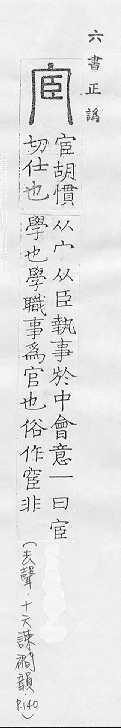 六書正譌
宦
宦胡慣
切仕也
从宀从臣執事於中會意一曰宦
學也學職事爲官也俗作䆠非
(去聲·十六諫襉韻 P.140)